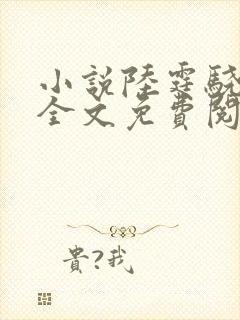 小説陸霆驍
全文免費閱
貴?我